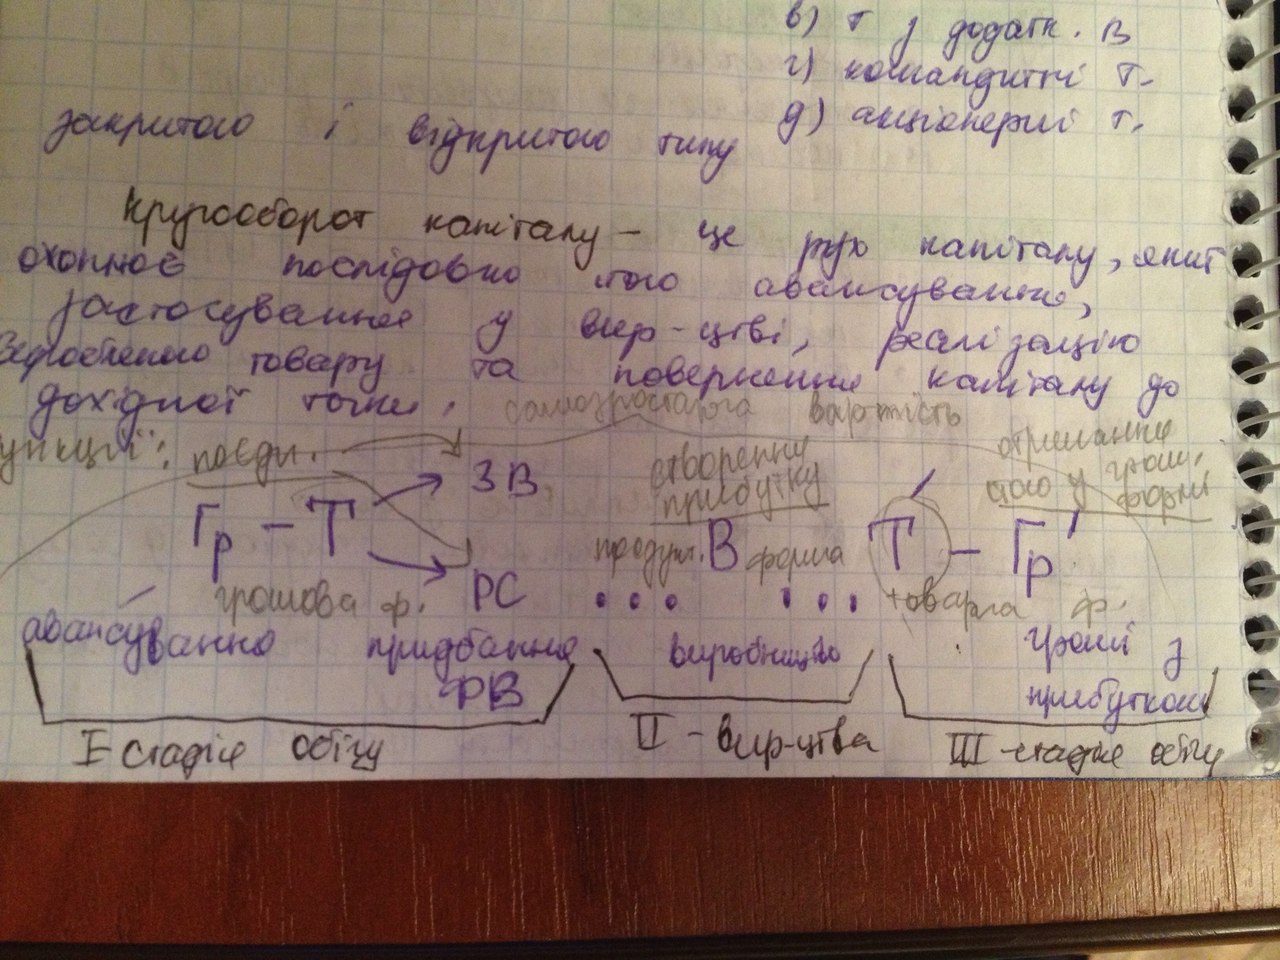 в) т з додатк. В
г) командитні т.
д) акціонерні т.
закритого і відкритого типу
Кругооборот капіталу – це рух капіталу, який
охоплює послідовно його авансування,
застосування у вир-цтві, реалізацію
виробленого товару та повернення капіталу до
дохідної точки.
самозростаюча вартість
ункції: поєдн.
створення
прибутку
отримання
його у грош.
формі
ЗВ
Гр – Т
продукт. В форма
Т' – Гр'
грошова ф.
РС
... ...
товарна ф.
авансування придбання
ФВ
виробництво
гроші з
прибутком
I-стадія обігу
II - вир-цтва
III -стадія обігу